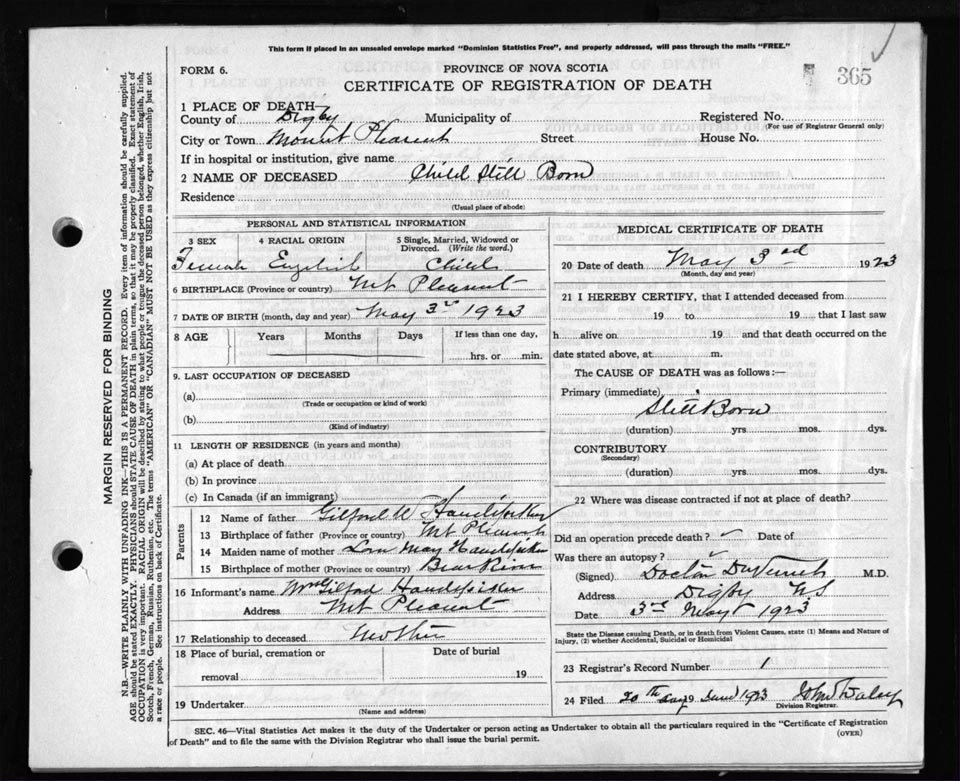 This form if placed in an unsealed envelope marked "Dominion Statistics Free", and properly addressed, will pass through the mails "FREE."
FORM 6.
PROVINCE OF NOVA SCOTIA
365
CERTIFICATE OF REGISTRATION OF DEATH
1 PLACE OF DEATH—
County of Digby Municipality of Registered No.
(For use of Registrar General only)
City or Town Mount Pleasant Street House No.
If in hospital or institution, give name
2 NAME OF DECEASED Child Still Born
Residence
(Usual place of abode)
PERSONAL AND STATISTICAL INFORMATION
3 SEX 4 RACIAL ORIGIN 5 Single, Married, Widowed or Divorced. (Write the word.)
Female English Child
6 BIRTHPLACE (Province or country) Mt Pleasant
7 DATE OF BIRTH (month, day and year) May 3rd 1923
8 AGE Years Months Days If less than one day,
hrs. or min.
9. LAST OCCUPATION OF DECEASED
(a)
(Trade or occupation or kind of work)
(b)
(Kind of industry)
11 LENGTH OF RESIDENCE (in years and months)
(a) At place of death
(b) In province
(c) In Canada (if an immigrant)
Parents
12 Name of father Gilford
13 Birthplace of father (Province or country) Mt Pleasant
14 Maiden name of mother May
15 Birthplace of mother (Province or country) Bear River
16 Informant's name Mrs Gilford
Address Mt Pleasant
17 Relationship to deceased Mother
18 Place of burial, cremation or Date of burial
removal 19
19 Undertaker
(Name and address)
MEDICAL CERTIFICATE OF DEATH
20 Date of death May 3rd 1923
(Month, day and year)
21 I HEREBY CERTIFY, that I attended deceased from
19 to 19 that I last saw
h alive on 19 and that death occurred on the
date stated above, at m.
The CAUSE OF DEATH was as follows:—
Primary (immediate)
Still Born
(duration) yrs. mos. dys.
CONTRIBUTORY
(Secondary)
(duration) yrs. mos. dys.
22 Where was disease contracted if not at place of death?
Did an operation precede death? Date of
Was there an autopsy?
(Signed) Doctor M.D.
Address Digby NS
Date 3rd May 1923
State the Disease causing Death, or in death from Violent Causes, state (1) Means and Nature of
Injury, (2) whether Accidental, Suicidal or Homicidal
23 Registrar's Record Number 1
24 Filed 20th day 19 June 1923 John Daley
Division Registrar.
SEC. 46—Vital Statistics Act makes it the duty of the Undertaker or person acting as Undertaker to obtain all the particulars required in the "Certificate of Registration
of Death" and to file the same with the Division Registrar who shall issue the burial permit.
(OVER)
MARGIN RESERVED FOR BINDING
N.B.—WRITE PLAINLY WITH UNFADING INK—THIS IS A PERMANENT RECORD. Every item of information should be carefully supplied.
AGE should be stated EXACTLY. PHYSICIANS should STATE CAUSE OF DEATH in plain terms, so that it may be properly classified. Exact statement of
OCCUPATION is very important. RACIAL ORIGIN will be described by stating to what people or tongue the deceased person belonged, whether English, Irish,
Scotch, French, German, Russian, Ruthenian, etc. The terms "AMERICAN" OR "CANADIAN" MUST NOT BE USED as they express citizenship but not
a race or people. See instructions on back of Certificate.